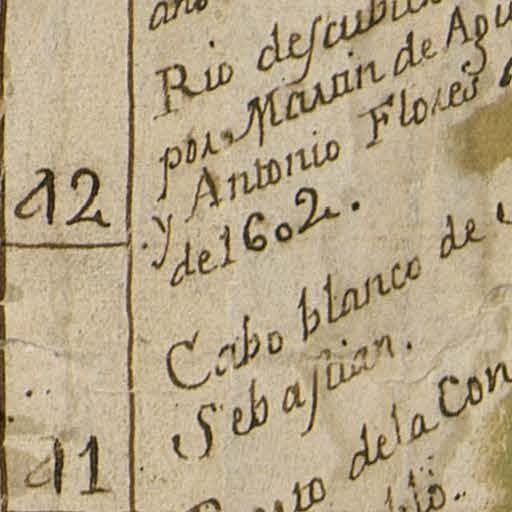 Rio descubi
por Martin de Agu
y Antonio Flores
de 1602.
42
Cabo blanco de
Sebastian.
41
de la Con